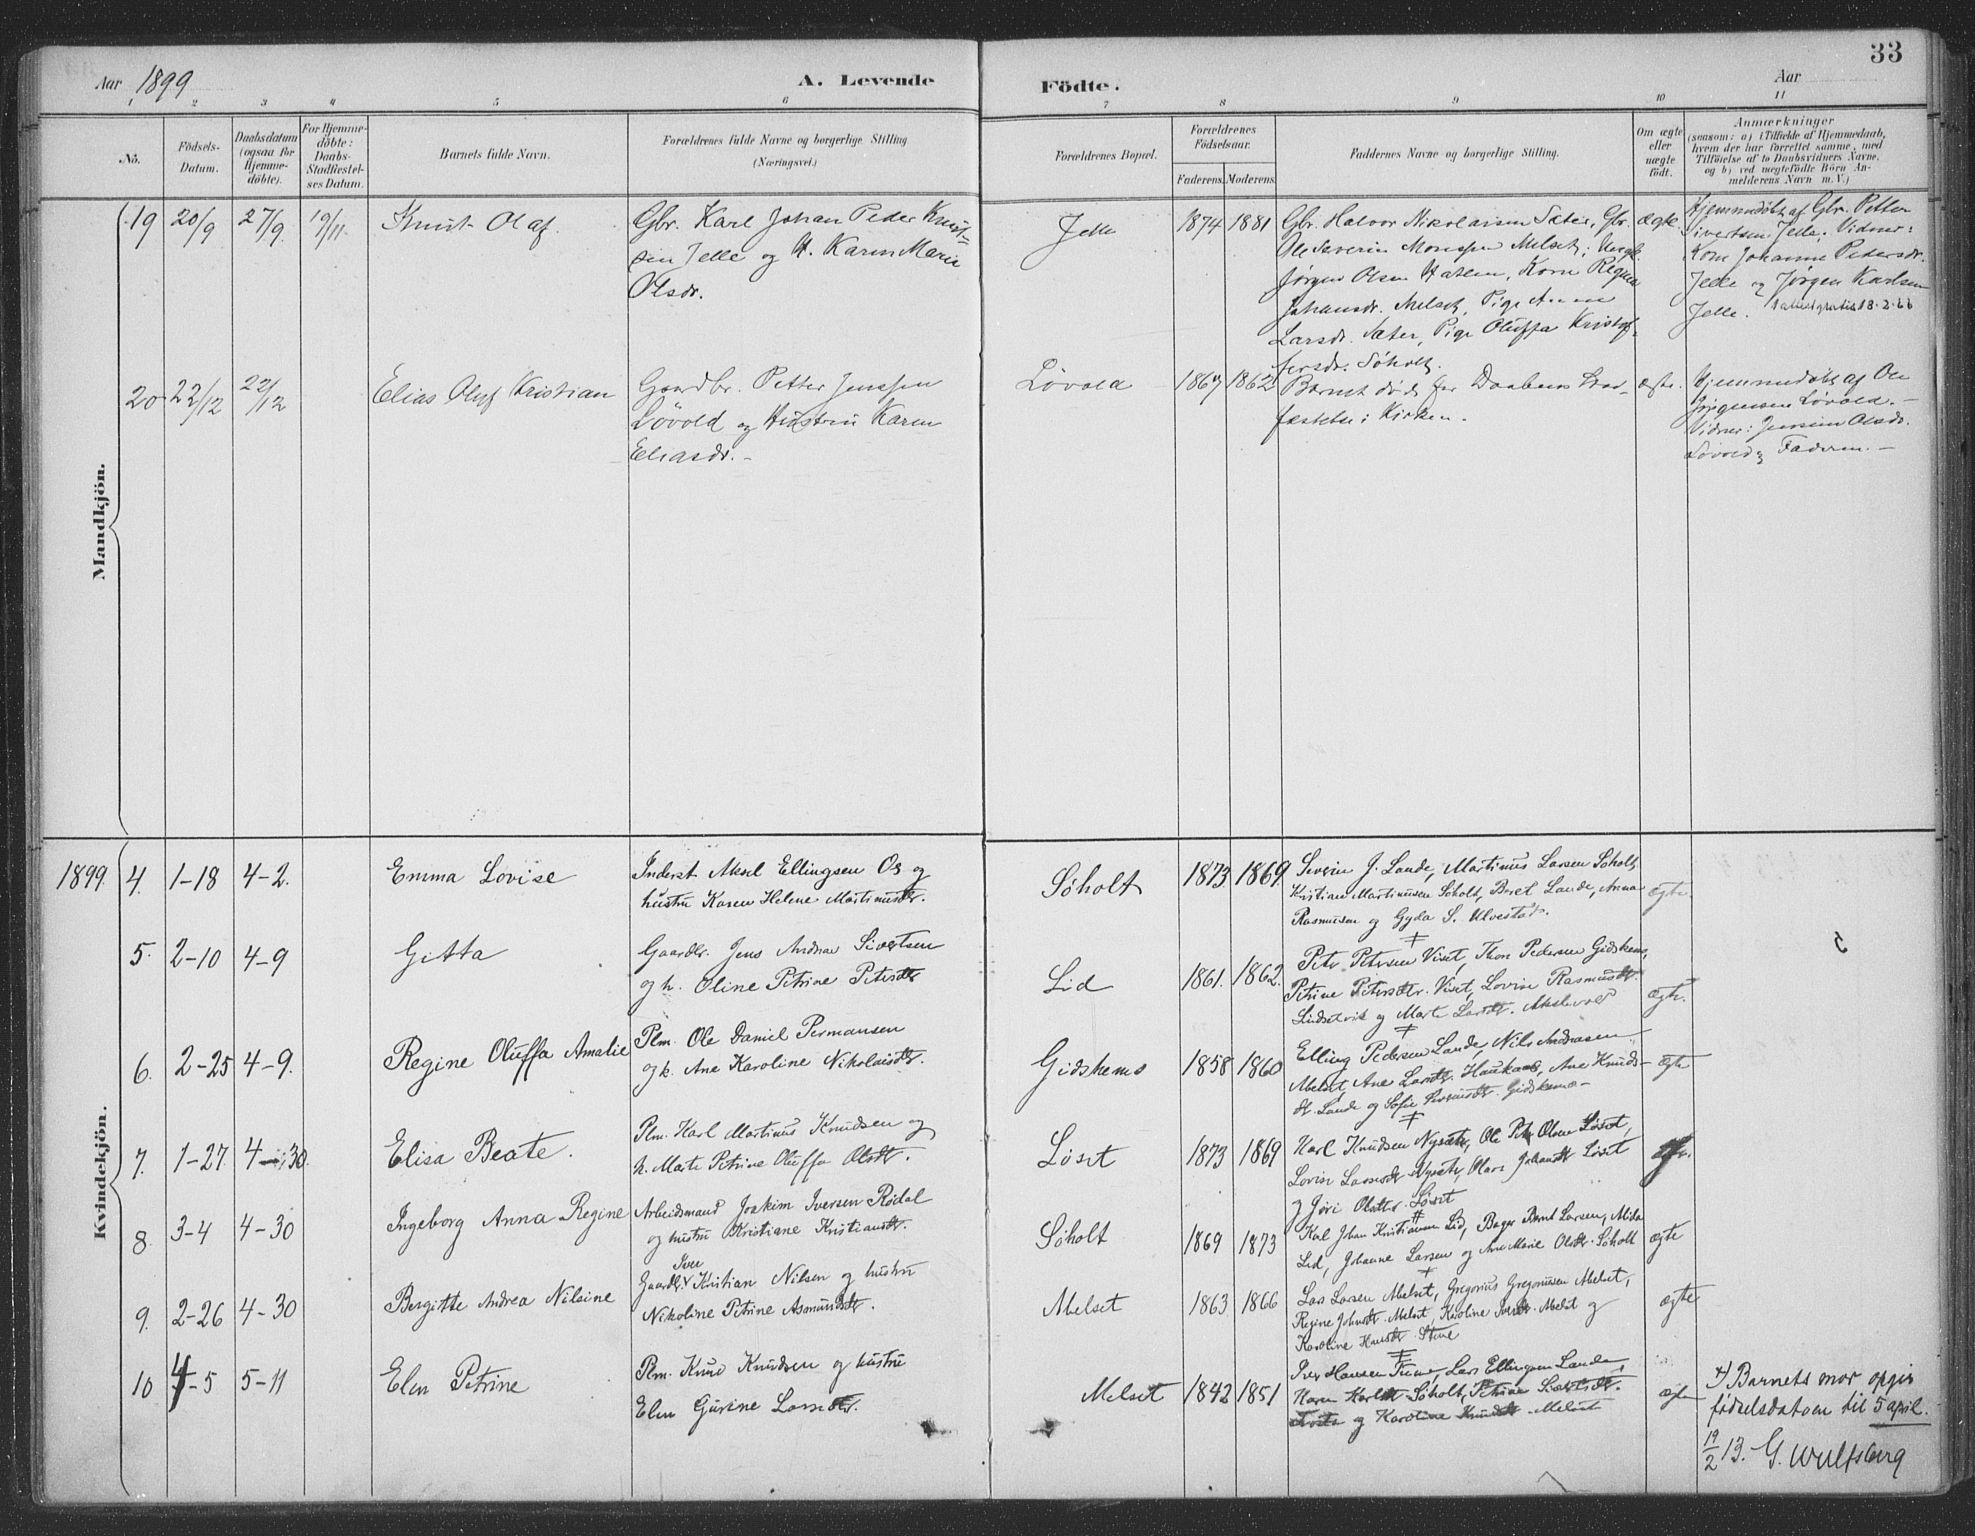 Aar 1899
A. Levende
Födte.
Aar
33
1 2 3 4 5 6 7 8 9 10 11
No.
Födsels-
Datum.
Daabsdatum
(ogsaa for
Hjemme-
döbte).
For Hjemme-
döbte:
Daabs-
Stadfæstel-
ses Datum.
Barnets fulde Navn.
Forældrenes fulde Navne og borgerlige Stilling
(Næringsvei.)
Forældrenes Bopæl.
Forældrenes
Födselsaar.
Faderens. Moderens.
Faddernes Navne og borgerlige Stilling.
Om ægte
eller
uægte
födt.
Anmærkninger
(saasom: a) i Tilfælde af Hjemmedaab,
hvem der har forrettet samme, med
Tilföielse af to Daabsvidners Navne,
og b) ved uægtefödte Börn An-
melderens Navn m. V.)
Mandkjön.
19 20/9 27/9 19/11
Knut Olaf
Gbr. Karl Johan Peder Knut-
sen Jelle og H. Karen Marie
Olsdr.
Jelle
1874 1881
Gbr. Halvor Nikolaisen Sæter, Gbr.
Ole Severin Monssen Melset; Ungk.
Jørgen Olsen Hatlen, Kone Regina
Johansdr. Melset, Pige Anne
Larsdr. Sæter, Pige Oluffa Kristof-
fersdr. Søholt.
ægte
Hjemmedøbt af Gbr. Petter
Sivertsen Jelle; Vidner:
Kone Johanne Pedersdr.
Jelle og Jørgen Karlsen
Jelle.
20 22/12 22/12
Elias Oluf Kristian
Gaardbr. Petter Jenssen
Løvold og Hustru Karen
Eliasdr. -
Løvold
1867 1862
Barnet døde før Daabens Stad-
fæstelse i Kirken.
ægte.
Hjemmedøbt af Ole
Jørgensen Løvold. -
Vidner: Jensine Olsdr.
Løvold og Faderen. -
Kvindekjön.
1899. 4. 1-18 4-2.
Emma Lovise
Inderst Aksel Ellingsen Os og
hustru Karen Helene Martinusdtr.
Søholt
1873 1869
Severin J. Lande, Martinus Larsen Søholt,
Kristian Martinussen Søholt, Beret Lande, Anna
Rasmusen og Gyda S. Ulvestad.
ægte
5. 2-10 4-9
Gitta
Gaardbr. Jens Andrea Sivertsen
og h. Oline Petrine Petersdtr
Lid
1861. 1862.
Peter Petersen Viset, Thon Pedersen Gidskems,
Petrine Petersdtr. Viset, Lovise Rasmusdtr.
Lidsetvik og Marte Larsdt. Akslevold
ægte.
6. 2-25 4-9.
Regine Oluffa Amalie
Plm. Ole Daniel Permansen
og h. Ane Karoline Nikolaisdtr.
Gidskems
1858 1860
Elling Pedersen Lande, Nils Andreasen
Melset, Ane Larsdtr. Haukaas, Ane Knuds-
dt. Lande og Sofie Iversdtr. Gidskems -
ægte
7. 1-27 4-30.
Elisa Beate.
Plm. Karl Martinus Knudsen og
h. Marte Petrine Oluffa Olsdt.
Løset
1873 1869
Karl Knudsen Nysæter, Ole Petr Olsen Løset,
Lovise Larsedt Nysætr, Olave Johansdt Løset
og Jøri Olsdtr. Løset
8. 3-4 4-30
Ingeborg Anna Regine
Arbeidsmand Joakim Iversen Rødal
og hustru Kristiane Kristiansdtr.
Søholt
1869 1873
Karl Johan Kristiansen Lid, Bager Bernt Larsen, Mida
Lid, Johanne Larsen og Ane Marie Olsdtr. Søholt
ægte
9. 2-26 4-30
Bergitte Andrea Nilsine
Iver
Gaardbr. Kristian Nilsen og hustru
Nikoline Petrine Asmundsdtr.
Melset
1863 1866
Lars Larsen Melset, Gregorius Gregoriusen Melset,
Regine Johnsdt. Melset, Karoline Iversdt. Melset og
Karoline Hansdtr. Stene
ægte
10 4-5 5-11
Elen Petrine
Plm. Knud Knudsen og hustru
Elen Gurine Larsdtr.
Melset
1842 1851
Iver Hansen Tune, Lars Ellingsen Lande,
Karen Karlsdt. Søholt, Petrine Sivertsdt.
og Karoline Knudsdt. Melset
ægte
x) Barnets mor opgir
fødselsdatoen til 5 april.
19/2 13. G. Wulfsberg